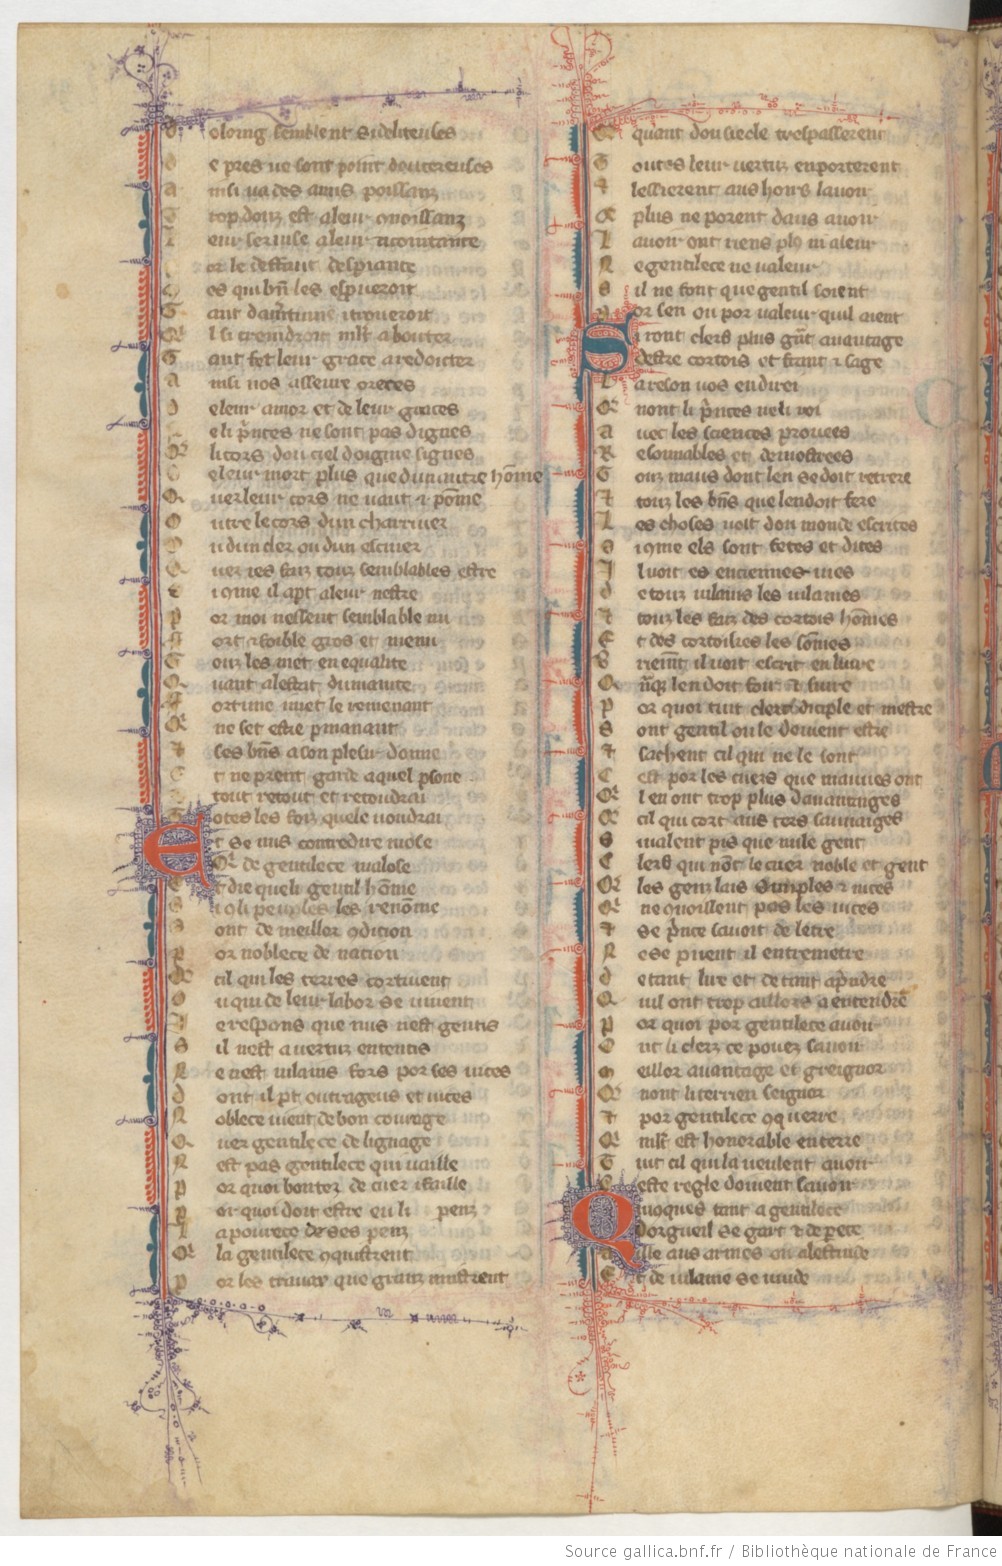 D e loing semblent si deliteuses
D e pres ne sont point doutereuses
A insi va des amis poissanz
T rop douz est a leur 9noissanz
L eur servise a leur acointance
or le deffaut desp̃iance
es qui bñ les esp̃ueroit
T ant damtume i troveroit
Q̃ l si creindroit ml̃t a bouter
T ant fet leur grace a redouter
A insi nos asseure oreces
D e leur amor et de leur graces
e li p̃nces ne sont pas dignes
Q̃ li cors dou ciel doigne signes
D e leur mort plus que dun autre hõme
Q ar leur cors ne vaut ⁊ põme
O utre le cors dun charruier
O u dun clerc ou dun escuier
Q ar ies faiz touz semblables estre
si 9me il ap̃t a leur nestre
P or moi nessent semblable nu
F ort ⁊ foible gros et menu
T ouz les met en equalite
Q uant a lestat dumanite
F ortune i met le remenant
Q̃ ne set estre p̃manant
⁊ ses bñs a son plesir donne
E t ne prent garde a quel p̃sone
⁊ tout retout et retoudrai
T otes les foiz quele voudrai
E t se nus contredire mose
Q̃ de gentilece malose
E t die que li gentil hõme
S i 9 li peuples les renõme
S ont de meillor 9dicion
P or noblece de nacion
Q̃ cil qui les terres cortivent
O u qui de leur labor se vivent
J e respons que nus nest gentis
S il nest a vertuz ententis
N e nest vilains fors por ses vices
D ont il p̃t outrageus et nices
N oblece vient de bon courage
Q ar gentilece de lignage
N est pas gentilece qui vaille
P or quoi bontez de cuer i faille
P or quoi doit estre en li penz
L a pourece de ses penz
Q̃ la gentilece 9quistrent
P or les travax que granz mistrent
E quant dou siecle trespasserent
T outes leur vertuz enporterent
⁊ lessierent aus hoirs lavoir
Q̃ plus ne porent daus avoir
L avoir ont riens pl9 ni a leur
N e gentilece ne valeur
S il ne font que gentil soient
P or sen ou por valeur quil aient
S i ront clers plus g̃nt avantage
D estre cortois et franc ⁊ sage
L a reson vos en direi
Q̃ nont li p̃nces ne li roi
A vec les sciences provees
R esonnables et demostrees
T ouz maus dont len se doit retrere
⁊ touz les bñs que len doit fere
L es choses voit dou monde escrites
S i 9me els sont fetes et dites
J l voit es enciennes vies
D e touz vilains les vilanies
⁊ touz les faiz des cortois hõmes
E t des cortoisies les sõmes
B riement il voit escrit en livre
Q ñq̃ len doit foir ⁊ sivre
P or quoi tuit clerc diciple et mestre
S ont gentil ou le doivent estre
⁊ sachent cil qui ne le sont
C est por les cuers que mauves ont
Q̃ l en ont trop plus davantages
Q̃ cil qui cort aus cers sauvaiges
S i valent pis que nule gent
C lers qui nõt le cuer noble et gent
Q̃ les genz lais simples ⁊ nices
Q̃ ne 9noissent pas les vices
⁊ se p̃nce savoit de letre
N e se puent il entremetre
D e tant lire et de tant ap̃ndre
Q uil ont trop aillors a entendre
P or quoi por gentilece avoir
O nt li clerz ce povez savoir
M eillor avantage et greignor
Q̃ nont li terrien seignor
⁊ por gentilece 9querre
Q̃ ml̃t est honorable en terre
T uit cil qui la veulent avoir
C este regle doivent savoir
Q uiquions tant a gentilece
D orgueil se gart ⁊ de perece
A ille aus armes ou a lestude
E t de vilanie se vuide
Source gallica.bnf.fr / Bibliothèque nationale de France